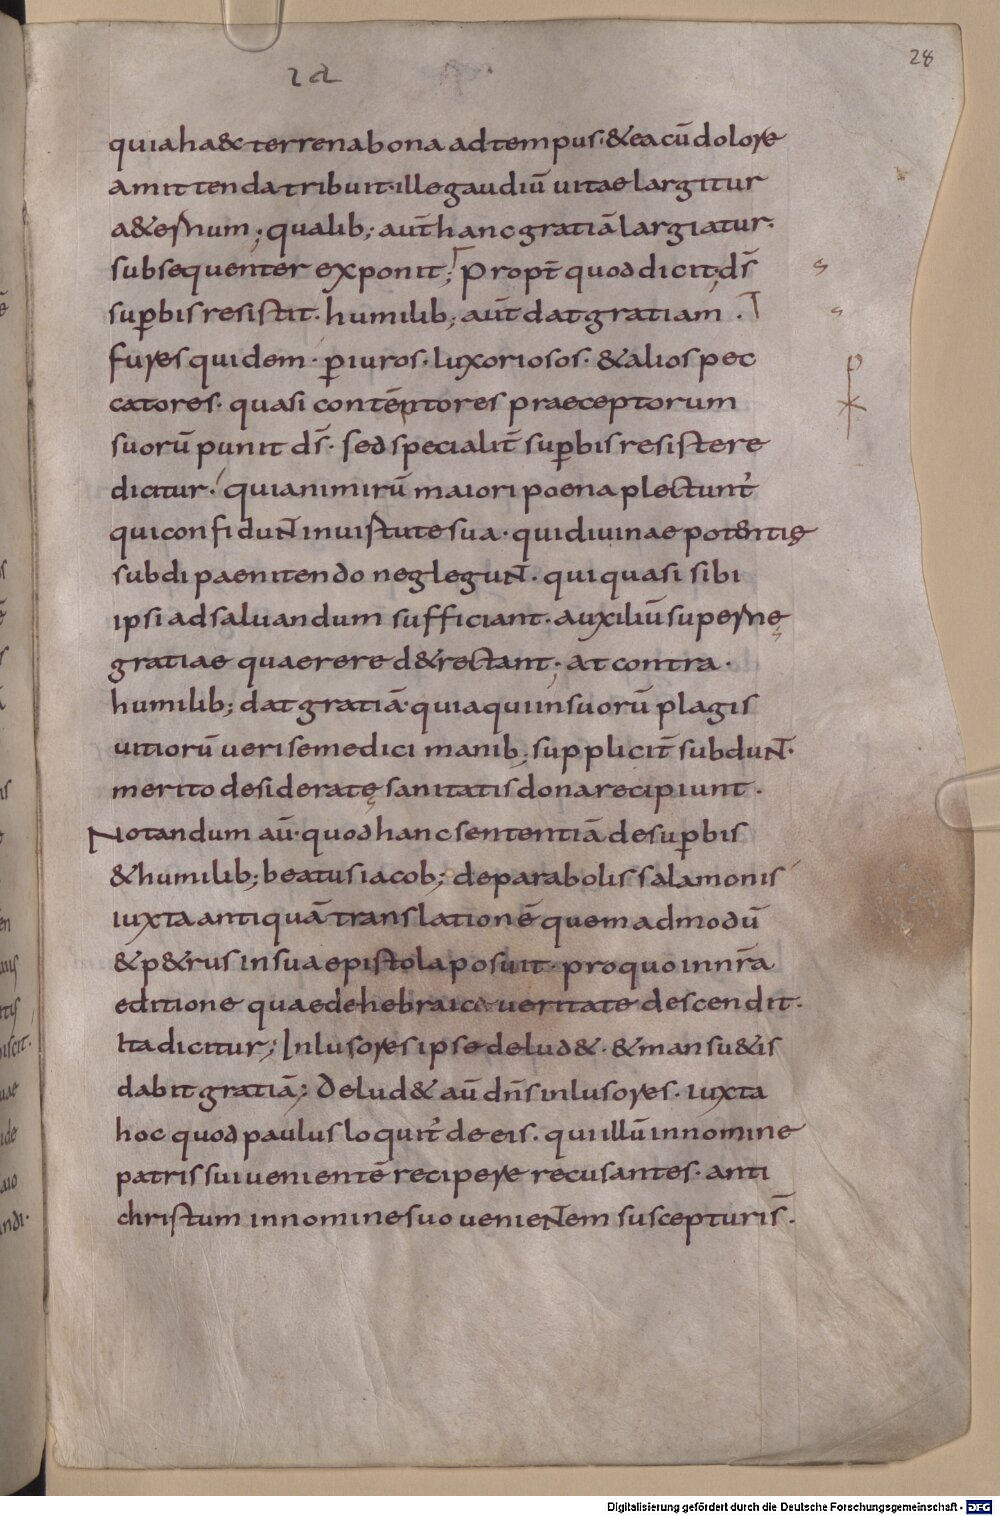 28
quia ha&c terrena bona ad tempus· & ea cū dolore
amittenda tribuit· ille gaudiū uitae largitur
a&ernum; qualib; aūt hanc gratiā largiatur·
subsequenter exponit; Propt̄ quod dicit; ds̄
sup̄bis resistit· humilib; aūt dat gratiam ·
fures quidem· p̄iuros· luxoriosos· & alios pec
catores· quasi contēptores praeceptorum
suorū punit ds̄· sed specialit̄ sup̄bis resistere
dicitur· quia nimirū maiori poena plectunt̄
qui confidunt in uirtute sua· qui diuinae potentię
subdi paenitendo neglegunt· qui quasi sibi
ipsi ad saluandum sufficiant· auxiliū supernę
gratiae quaerere d&rectant; at contra·
humilib; dat gratiā· quia qui in suorū plagis
uitiorū ueri se medici manib; supplicit̄ subdunt·
merito desideratę sanitatis dona recipiunt·
Notandum aū· quod hanc sententiā de sup̄bis
& humilib; beatus iacob; de parabolis salamonis
iuxta antiquā translationē quem ad modū
& p&rus in sua epistola posuit· pro quo in nr̄a
editione quae de hebraica ueritate descendit·
Ita dicitur; Inlusores ipse delud&· & mansu&is
dabit gratiā; Delud& aū dn̄s inlusores· iuxta
hoc quod paulus loquit̄ de eis· qui illū in nomine
patris sui uenientē recipere recusantes· anti
christum in nomine suo uenientem suscepturi s̄·
Digitalisierung gefördert durch die Deutsche Forschungsgemeinschaft - DFG